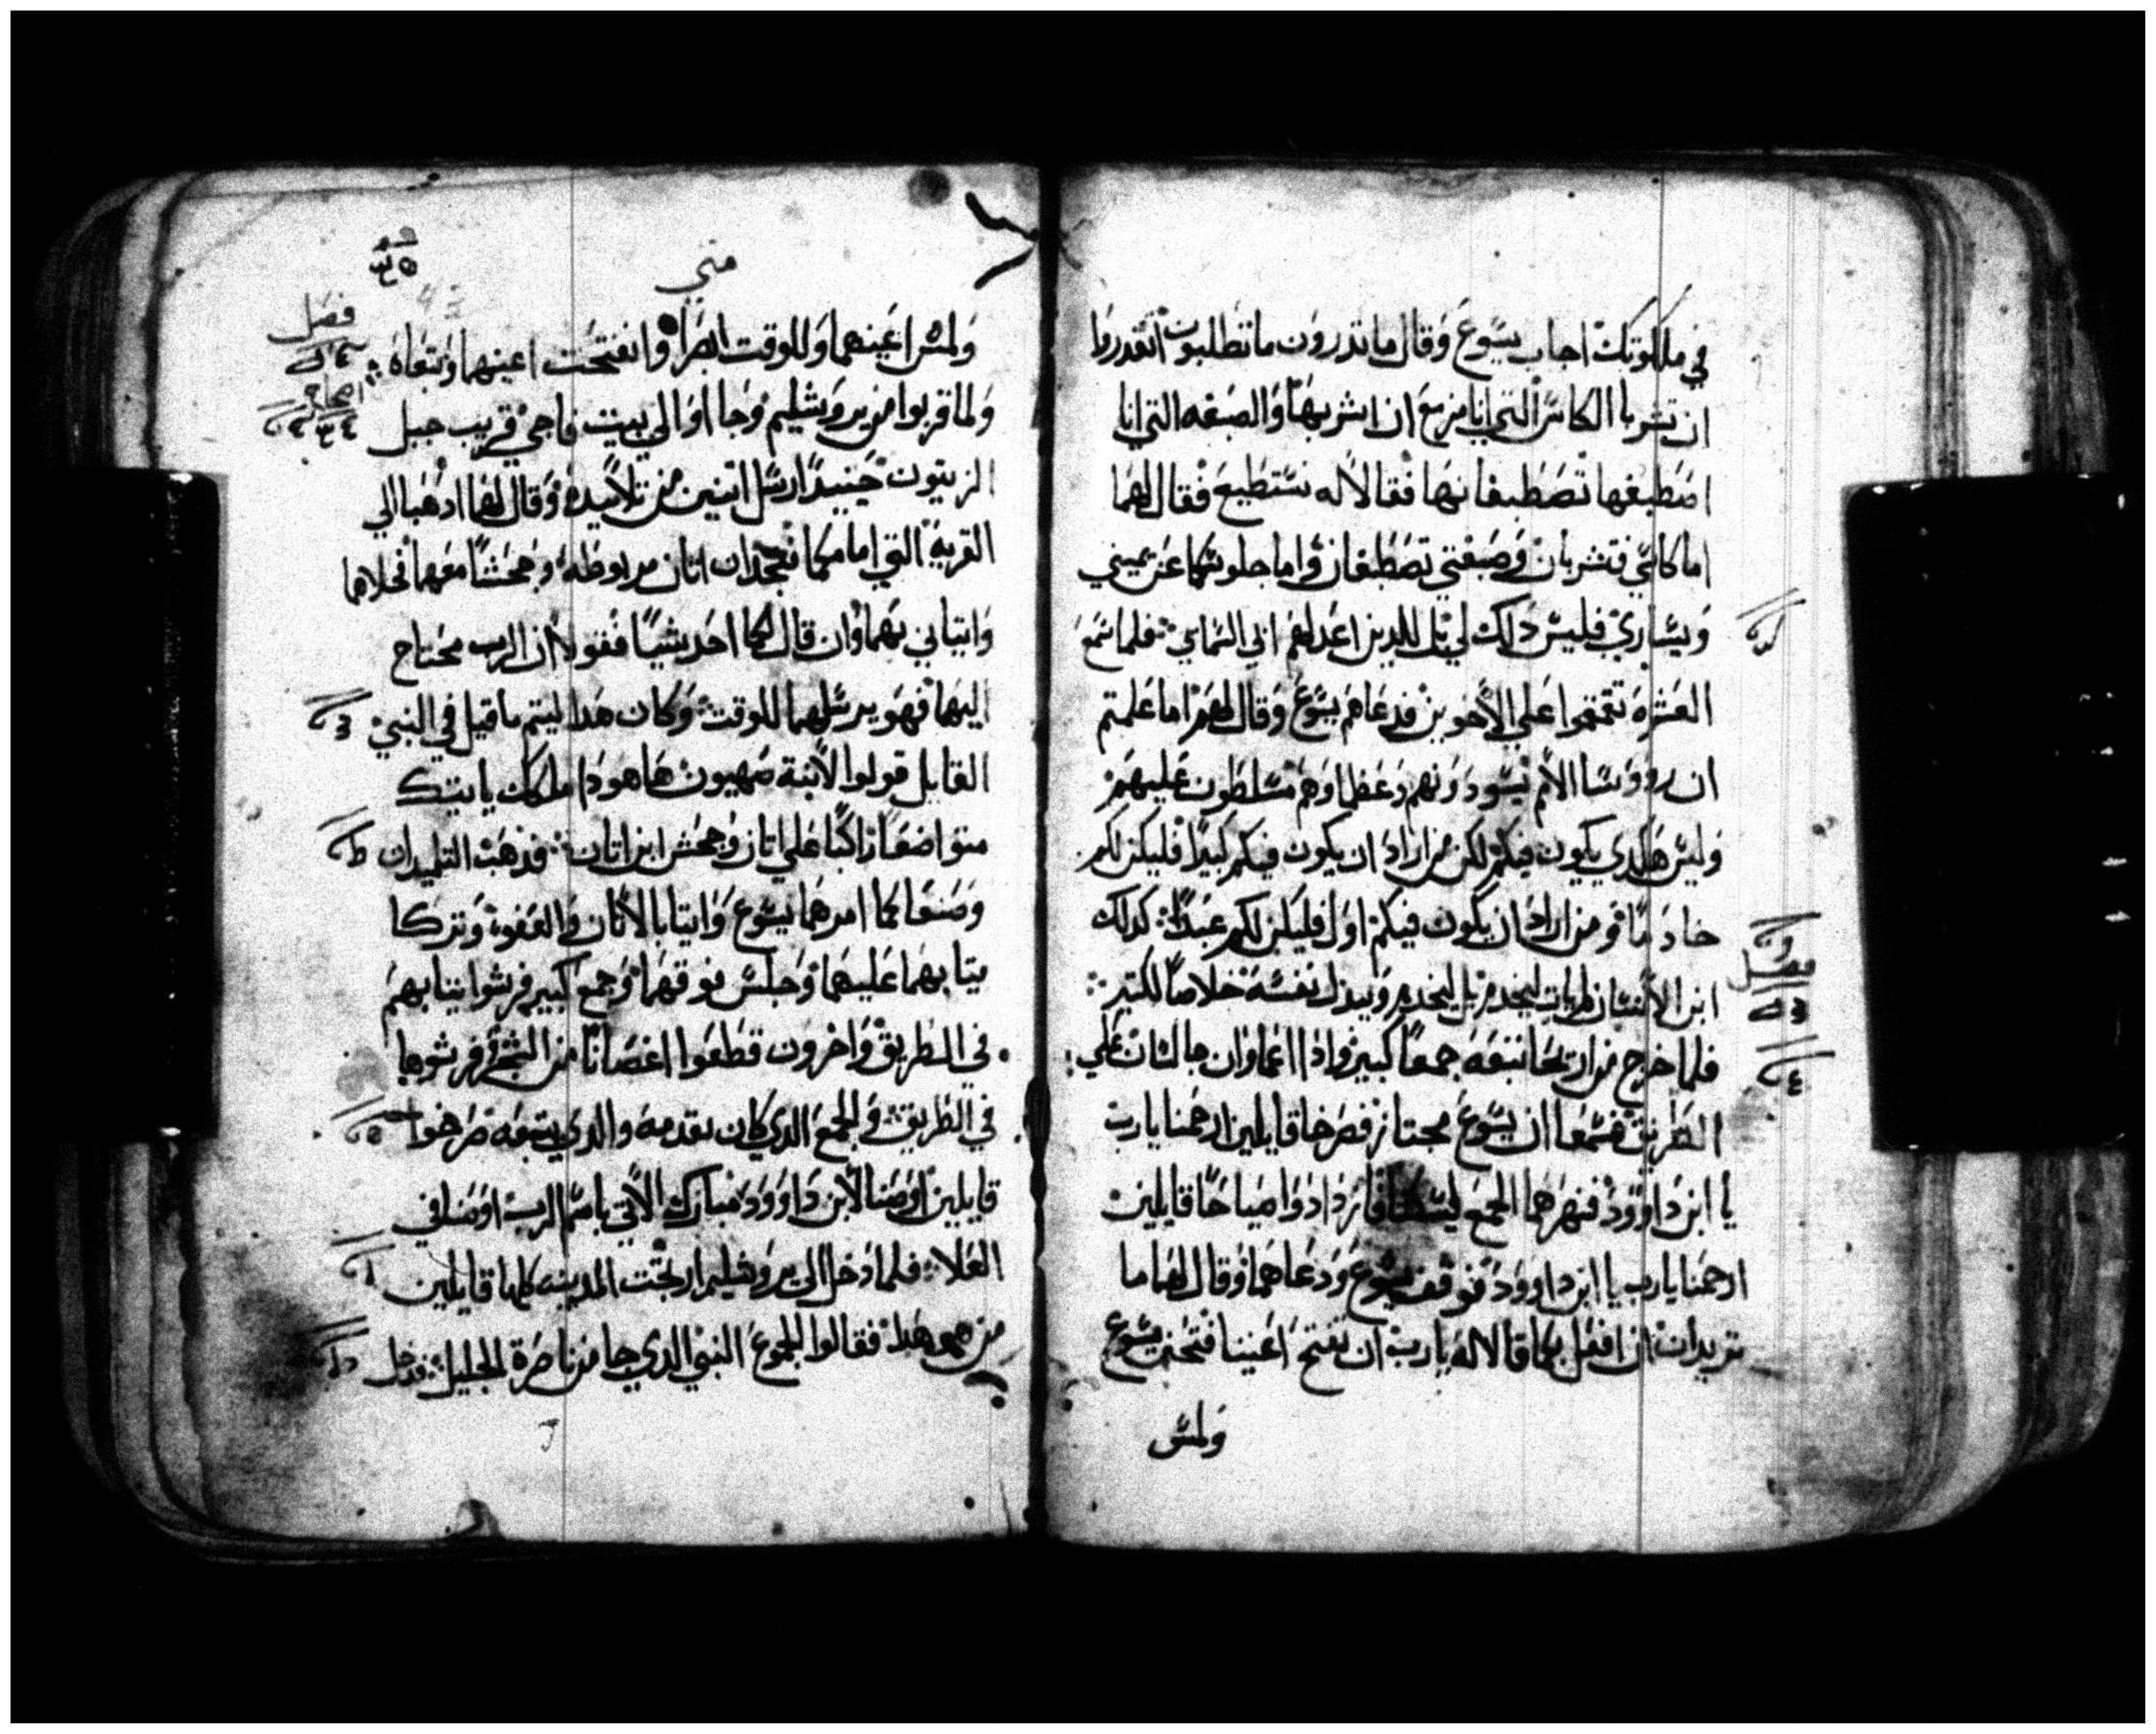 في ملكوتك اجاب يسوع وقال ما تدرون ما تطلبون اتقدروا
ان تشربا الكاس التي انا مزمع ان اشربها والصبغه التي انا
اصطبغها تصطبغانها فقالا له نستطيع فقال لهما
اما كاسي فتشربان وصبغتي تصطبغان واما جلوسكما عن يميني
ويساري فليس دلك لي بل للدين اعد لهم ابي السماي فلما سمع
العشره تقمقموا علي الاخوين فدعاهم يسوع وقال لهم اما علمتم
ان روسا الامم تسودونهم وعظماوهم مسلطون عليهم
وليس هكدي يكون فيكم لكن من اراد ان يكون فيكم كبيرًا فليكن لكم
خادمًا ومن اراد ان يكون فيكم اول فليكن لكم عبدًا كدلك
ابن الانسان لم يات ليخدم بل ليخدم ويبدل نفسه خلاصًا لكتير
فلما خرج من اريحا تبعه جمعًا كبير واذا اعماوان جالسان علي
الطريق فسمعا ان يسوع مجتاز فصرخا قايلين ارحمنا يارب
يا ابن داوود فنهرهما الجمع ليسكتا فازدادوا صياحًا قايلين
ارحمنا يارب يا ابن داوود فوقف يسوع ودعاهما وقال لهما ما
تريدان ان افعل بكما قالا له يارب ان تفتح اعيننا فتحنن يسوع
ولمس
متي
فصل
ولمس اعينهما وللوقت ابصرا وانفتحت اعينهما وتبعاه
ولما قربوا من يروشليم وجااوا الي بيت فاجي قريب جبل
الزيتون حينيدًا ارسل اتنين من تلاميده وقال لهما ادهبا الي
القرية التي امامكما فتجدان اتان مربوطه وجحشًا معها فحلاها
وايتياني بهما وان قال لكما احد شيًا فقولا ان الرب محتاج
اليهما فهو يرسلهما للوقت وكان هدا ليتم ما قيل في النبي
القايل قولوا لابنة صهيون هاهودا ملكك ياتيك
متواضعًا راكبًا علي اتان وجحش ابن اتان فدهب التلميدان
وصنعا كما امرهما يسوع وايتيا بالاتان والعفو وتركا
تيابهما عليهما وجلس فوقهما وجمع كبير فرشوا تيابهم
في الطريق واخرون قطعوا اغصانًا من الشجر وفرشوها
في الطريق والجمع الدي كان يقدمه والدي يتبعه صرخوا
قايلين اوصنا لابن داوود مبارك الاتي باسم الرب اوصنا في
العلا فلما دخل الي يروشليم ارتجت المدينه كلها قايلين
من هو هدا فقالوا الجموع النبي الدي جا من ناصرة الجليل فدخل